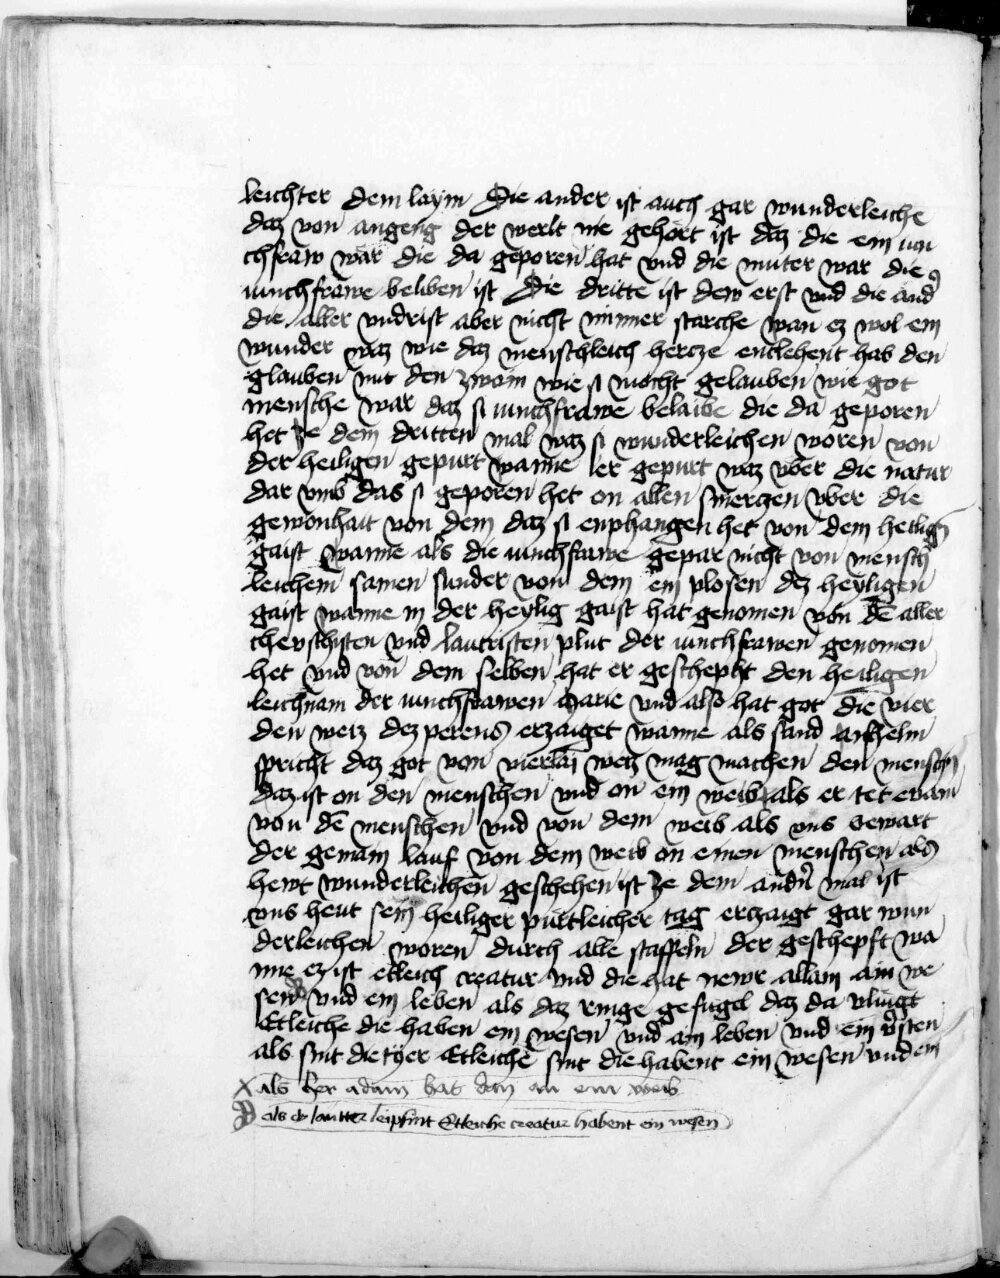 leichter dem laym Die ander ist auch gar wunderleiche
daz von angeng der werlt nie gehört ist daz die ein iun
chfraw wär die da geporen hat vnd die muter war die
iunchfrawe beliben ist Die dritte ist dew erst vnd die and
die aller vndrist aber nicht minner starche wan ez wol ein
wunder waz wie daz menschleich hercze entlehent hab den
glauben mit den zwain wie si mocht gelauben wie got
mensche war daz si iunchfrawe belaibe die da geporen
het ze dem dritten mal waz si wunderleichen woren von
der heiligen gepurt wanne ier gepurt waz vber die natur
dar vmb das si geporen het on allen smerczen vber die
gewonhait von dem daz si enphangen het von dem heilig
gaist wanne als die iunchfrawe gepar nicht von mensch
leichem samen sunder von dem ein plosen dez heyligen
gaist wanne in der heylig gaist hat genomen von dē aller
chevschisten vnd lautristen plut der iunchfrawen genomen
het vnd von dem selben hat er geschepht den heiligen
leichnam der iunchfrawen Marie vnd also hat got die vier
den weiz dez perens erzaiget wanne als sand anshelm
spricht daz got von vierlai weiz mag machen den mensch
daz ist on den menschen vnd on ein weib als er tet evam
von dē menschen vnd von dem weib als vns bewart
der gemain lauf von dem weib on einen menschen als
hewt wunderleichen geschehen ist ze dem andn mal ist
vns heut sein heiliger purtleicher tag erczaigt gar wun
derleichen woren durch alle staffeln der geschepft wa
nne ez ist etleich creatur vnd die hat newr allain ain we
sen vnd ein leben als daz ringe gefugel daz da vliugt
Etleiche die haben ein wesen vnd ain leben vnd ein vsten
als sint die tyer Etleiche sint die habent ein wesen vnd ein
X als her adam hat den on ein weib
als der lautter leip sint Etleiche creatur habent ein wesen